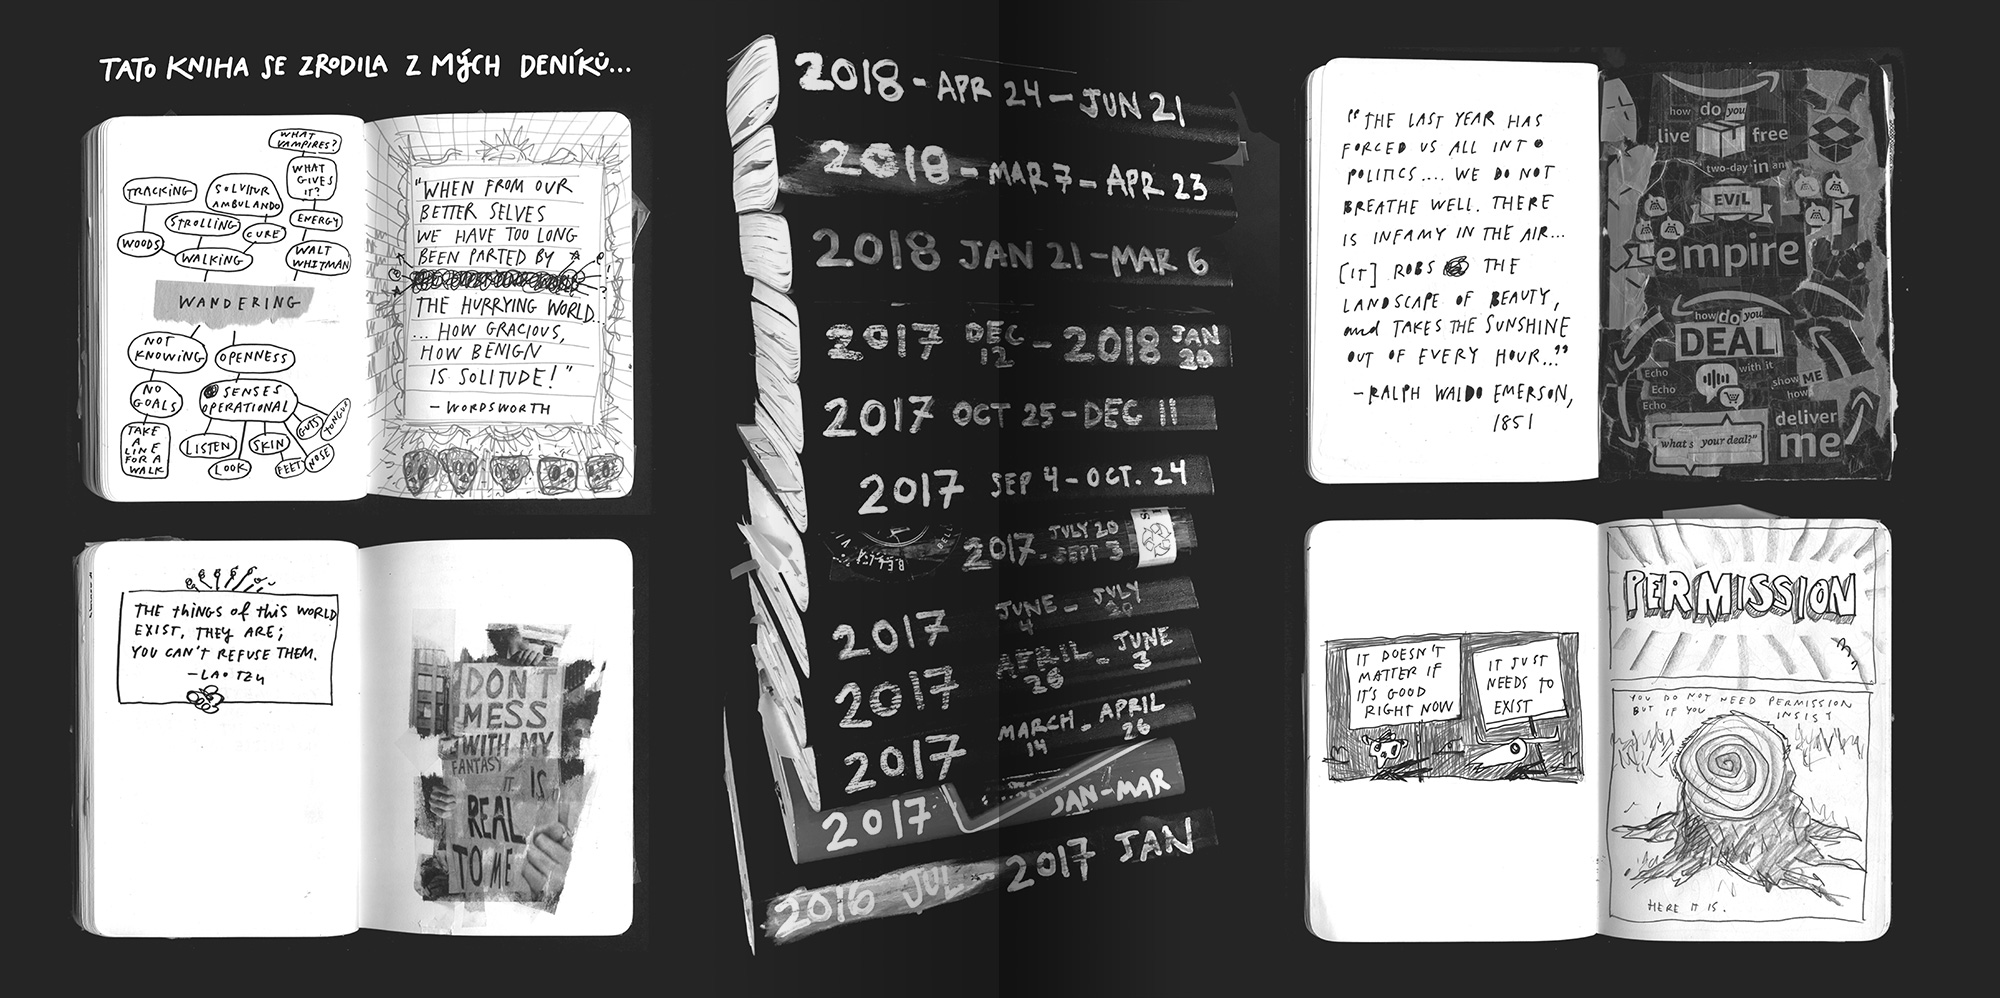 TATO KNIHA SE ZRODILA Z MÝCH DENÍKŮ...
WHAT
VAMPIRES?
WHAT
GIVES
IT?
TRACKING
SOLVITUR
AMBULANDO
STROLLING
ENERGY
CURE
WOODS
WALKING
WALT
WHITMAN
WANDERING
NOT
KNOWING
OPENNESS
NO
GOALS
SENSES
OPERATIONAL
TAKE
A
LINE
FOR A
WALK
LISTEN
LOOK
SKIN
FEET
NOSE
GUTS
TONGUE
"WHEN FROM OUR
BETTER SELVES
WE HAVE TOO LONG
BEEN PARTED BY
THE HURRYING WORLD...
...HOW GRACIOUS,
HOW BENIGN
IS SOLITUDE!"
- WORDSWORTH
THE THINGS OF THIS WORLD
EXIST, THEY ARE;
YOU CAN'T REFUSE THEM.
-LAO TZU
DON'T
MESS
WITH MY
FANTASY
IT IS
REAL
TO ME
2018 - APR 24 - JUN 21
2018 - MAR 7 - APR 23
2018 JAN 21 - MAR 6
2017 DEC 12 - 2018 JAN 20
2017 OCT 25 - DEC 11
2017 SEP 4 - OCT. 24
2017 - JULY 20 SEPT 3
2017 JUNE 4 - JULY 20
2017 APRIL 26 - JUNE 3
2017 MARCH 14 - APRIL 26
2017 JAN - MAR
2016 JUL - 2017 JAN
"THE LAST YEAR HAS
FORCED US ALL INTO
POLITICS.... WE DO NOT
BREATHE WELL. THERE
IS INFAMY IN THE AIR...
[IT] ROBS THE
LANDSCAPE OF BEAUTY,
and TAKES THE SUNSHINE
OUT OF EVERY HOUR..."
- RALPH WALDO EMERSON,
1851
how do you
live free
two-day in an
EVIL
empire
how do you
DEAL
with it
Echo
Echo
Echo
show ME
how
deliver
me
"what's your deal?"
IT DOESN'T
MATTER IF
IT'S GOOD
RIGHT NOW
IT JUST
NEEDS TO
EXIST
PERMISSION
YOU DO NOT NEED PERMISSION
BUT IF YOU INSIST
HERE IT IS.